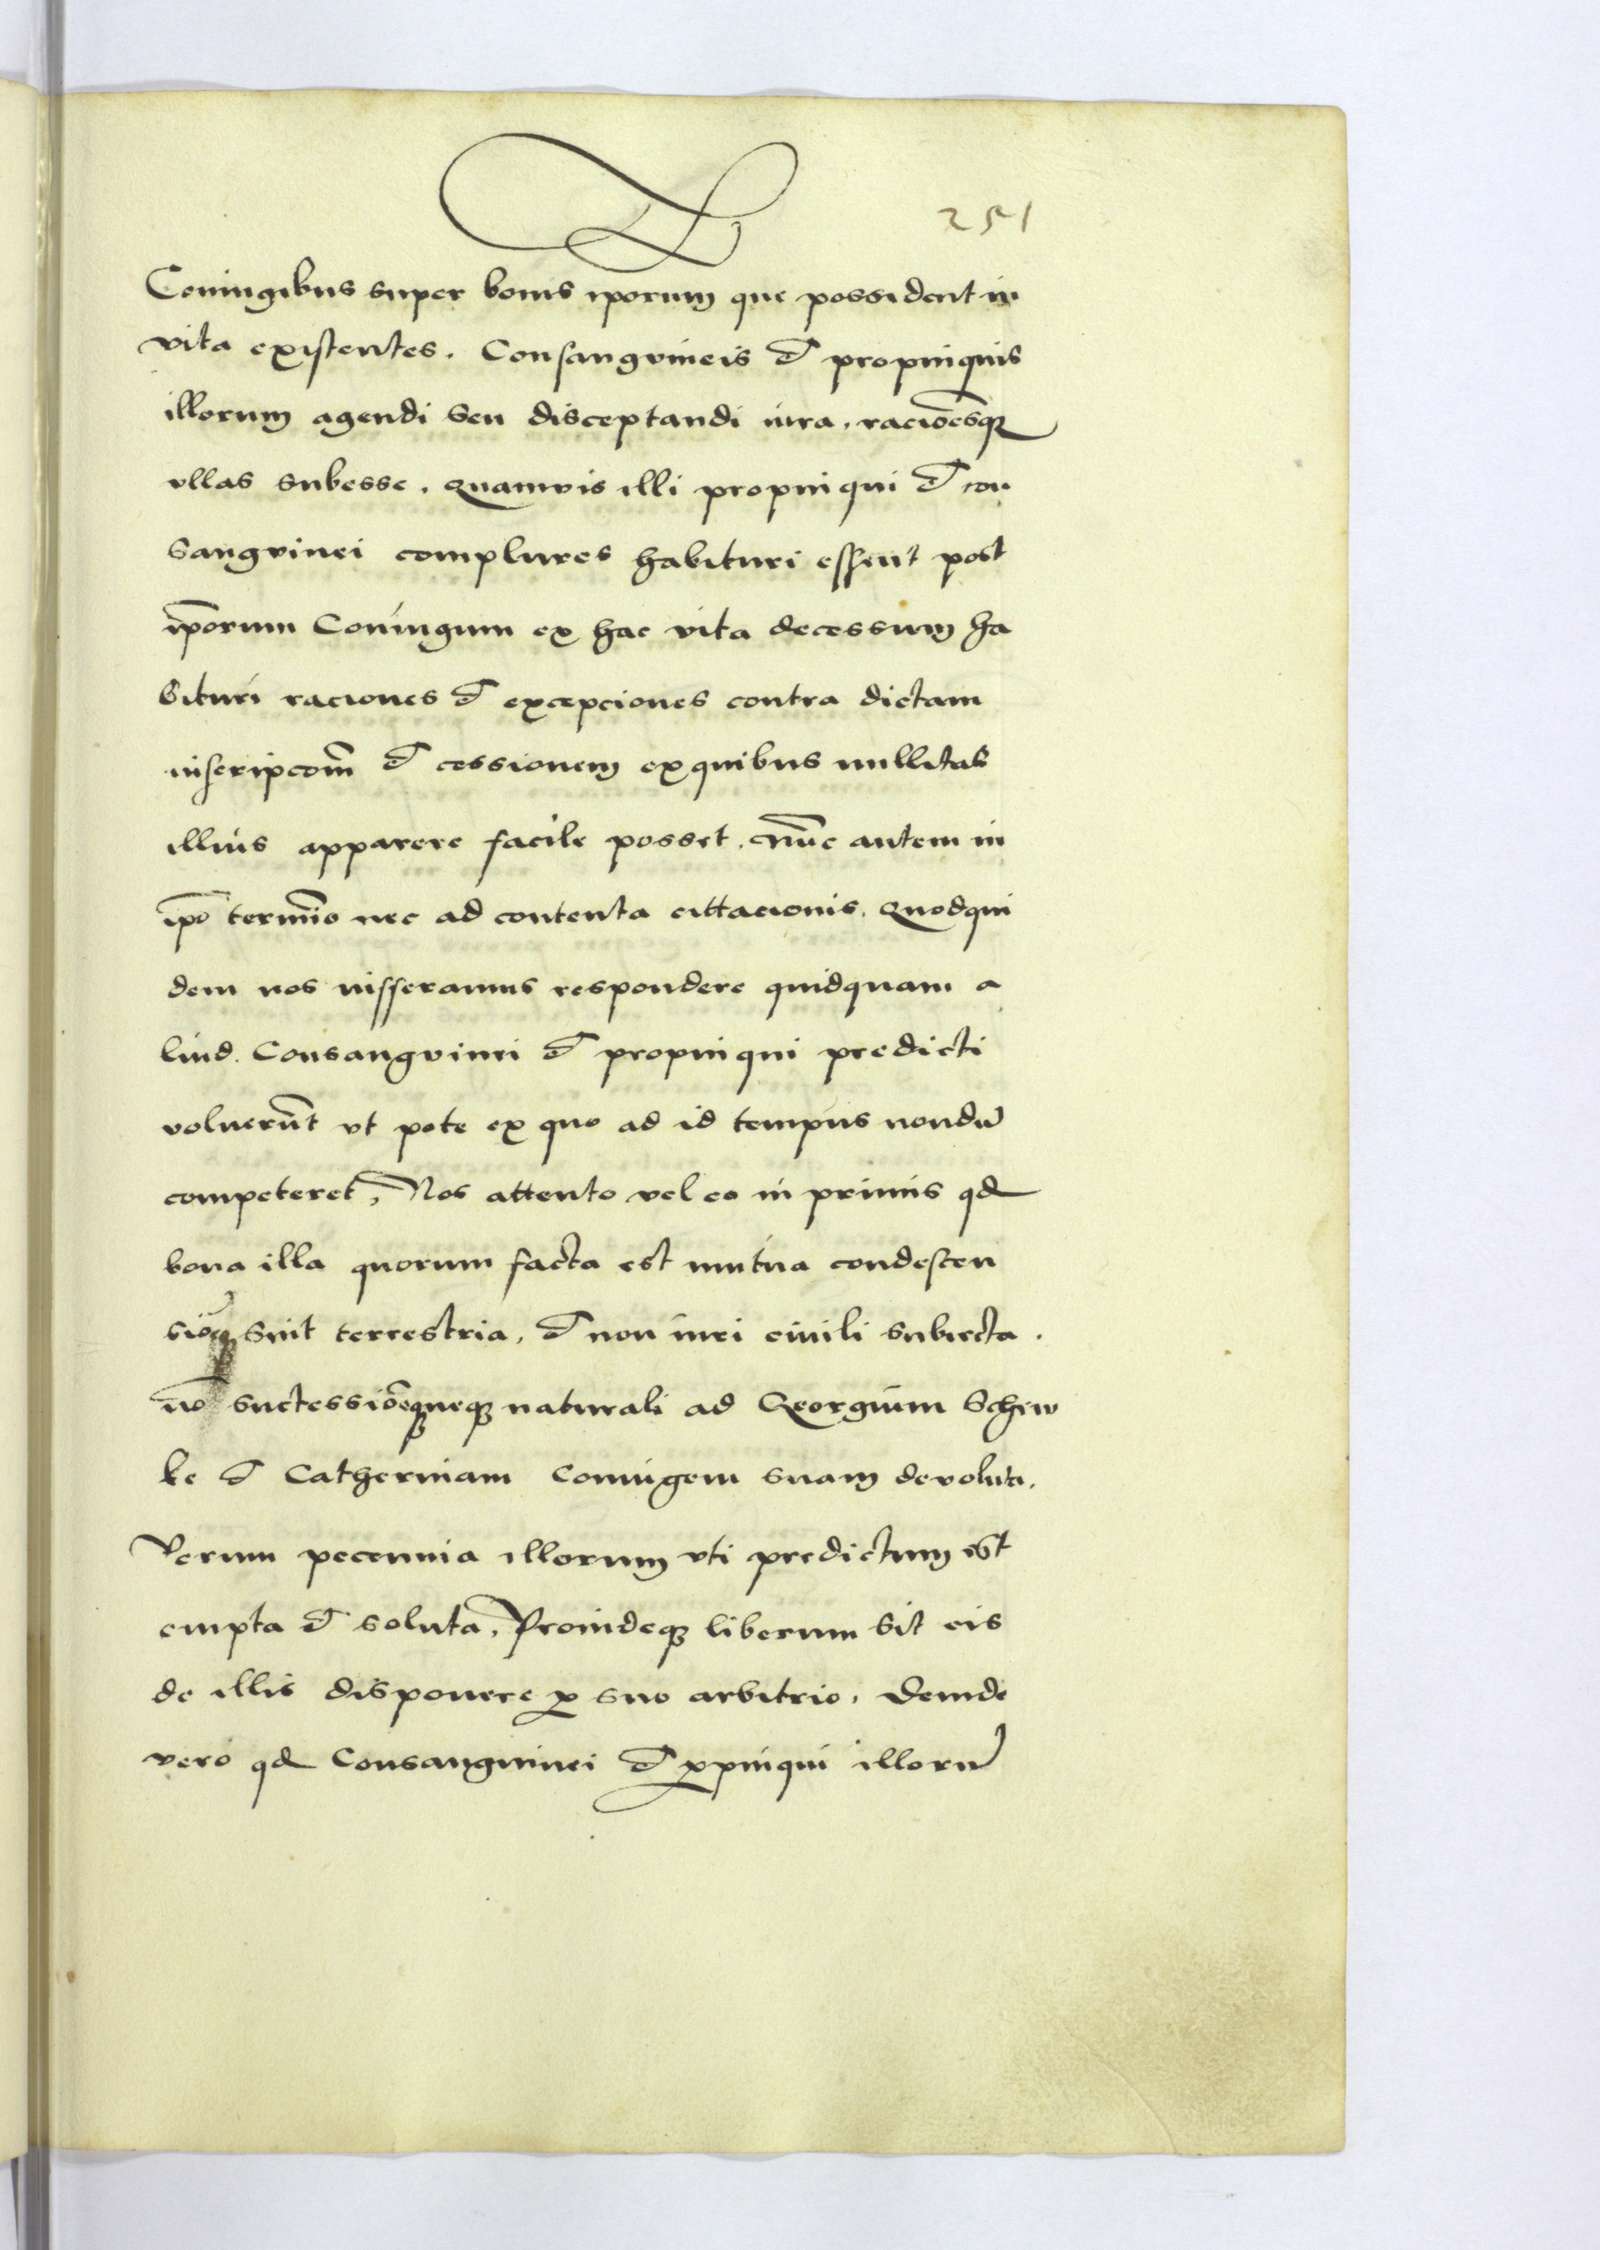 251
Coniugibus super bonis iporum que possident in
vita existentes. Consangvineis et propinquis
illorum agendi seu disceptandi iura, racioēsq
ullas subesse. Quamvis illi propinqui et con
sangvinei complures habituri essent post
ip̄orum Coniugum ex hac vita decessum ha
bituri raciones et excepciones contra dictam
inscripcōm et cessionem ex quibus nullitas
illius apparere facile posset. Nūc autem in
ip̄o termīo nec ad contenta cittacionis. Quodqui
dem nos iusseramus respondere quidquam a
liud. Consangvinei et propinqui predicti
voluerūt vt pote ex quo ad id tempus nondū
competeret, Nos attento vel eo in primis qd
bona illa quorum facta est mutua condescen
sio sint terrestria, et non iuri ciuili subiecta.
successiōe naturali ad Georgium Schew
ke et Catherinam Coniugem suam devoluta.
Verum peccunia illorum vti predictum est
empta et soluta, Proindeq liberum sit eis
de illis disponere p suo arbitrio. Deinde
vero qd Consanguinei et ppinqui illorū